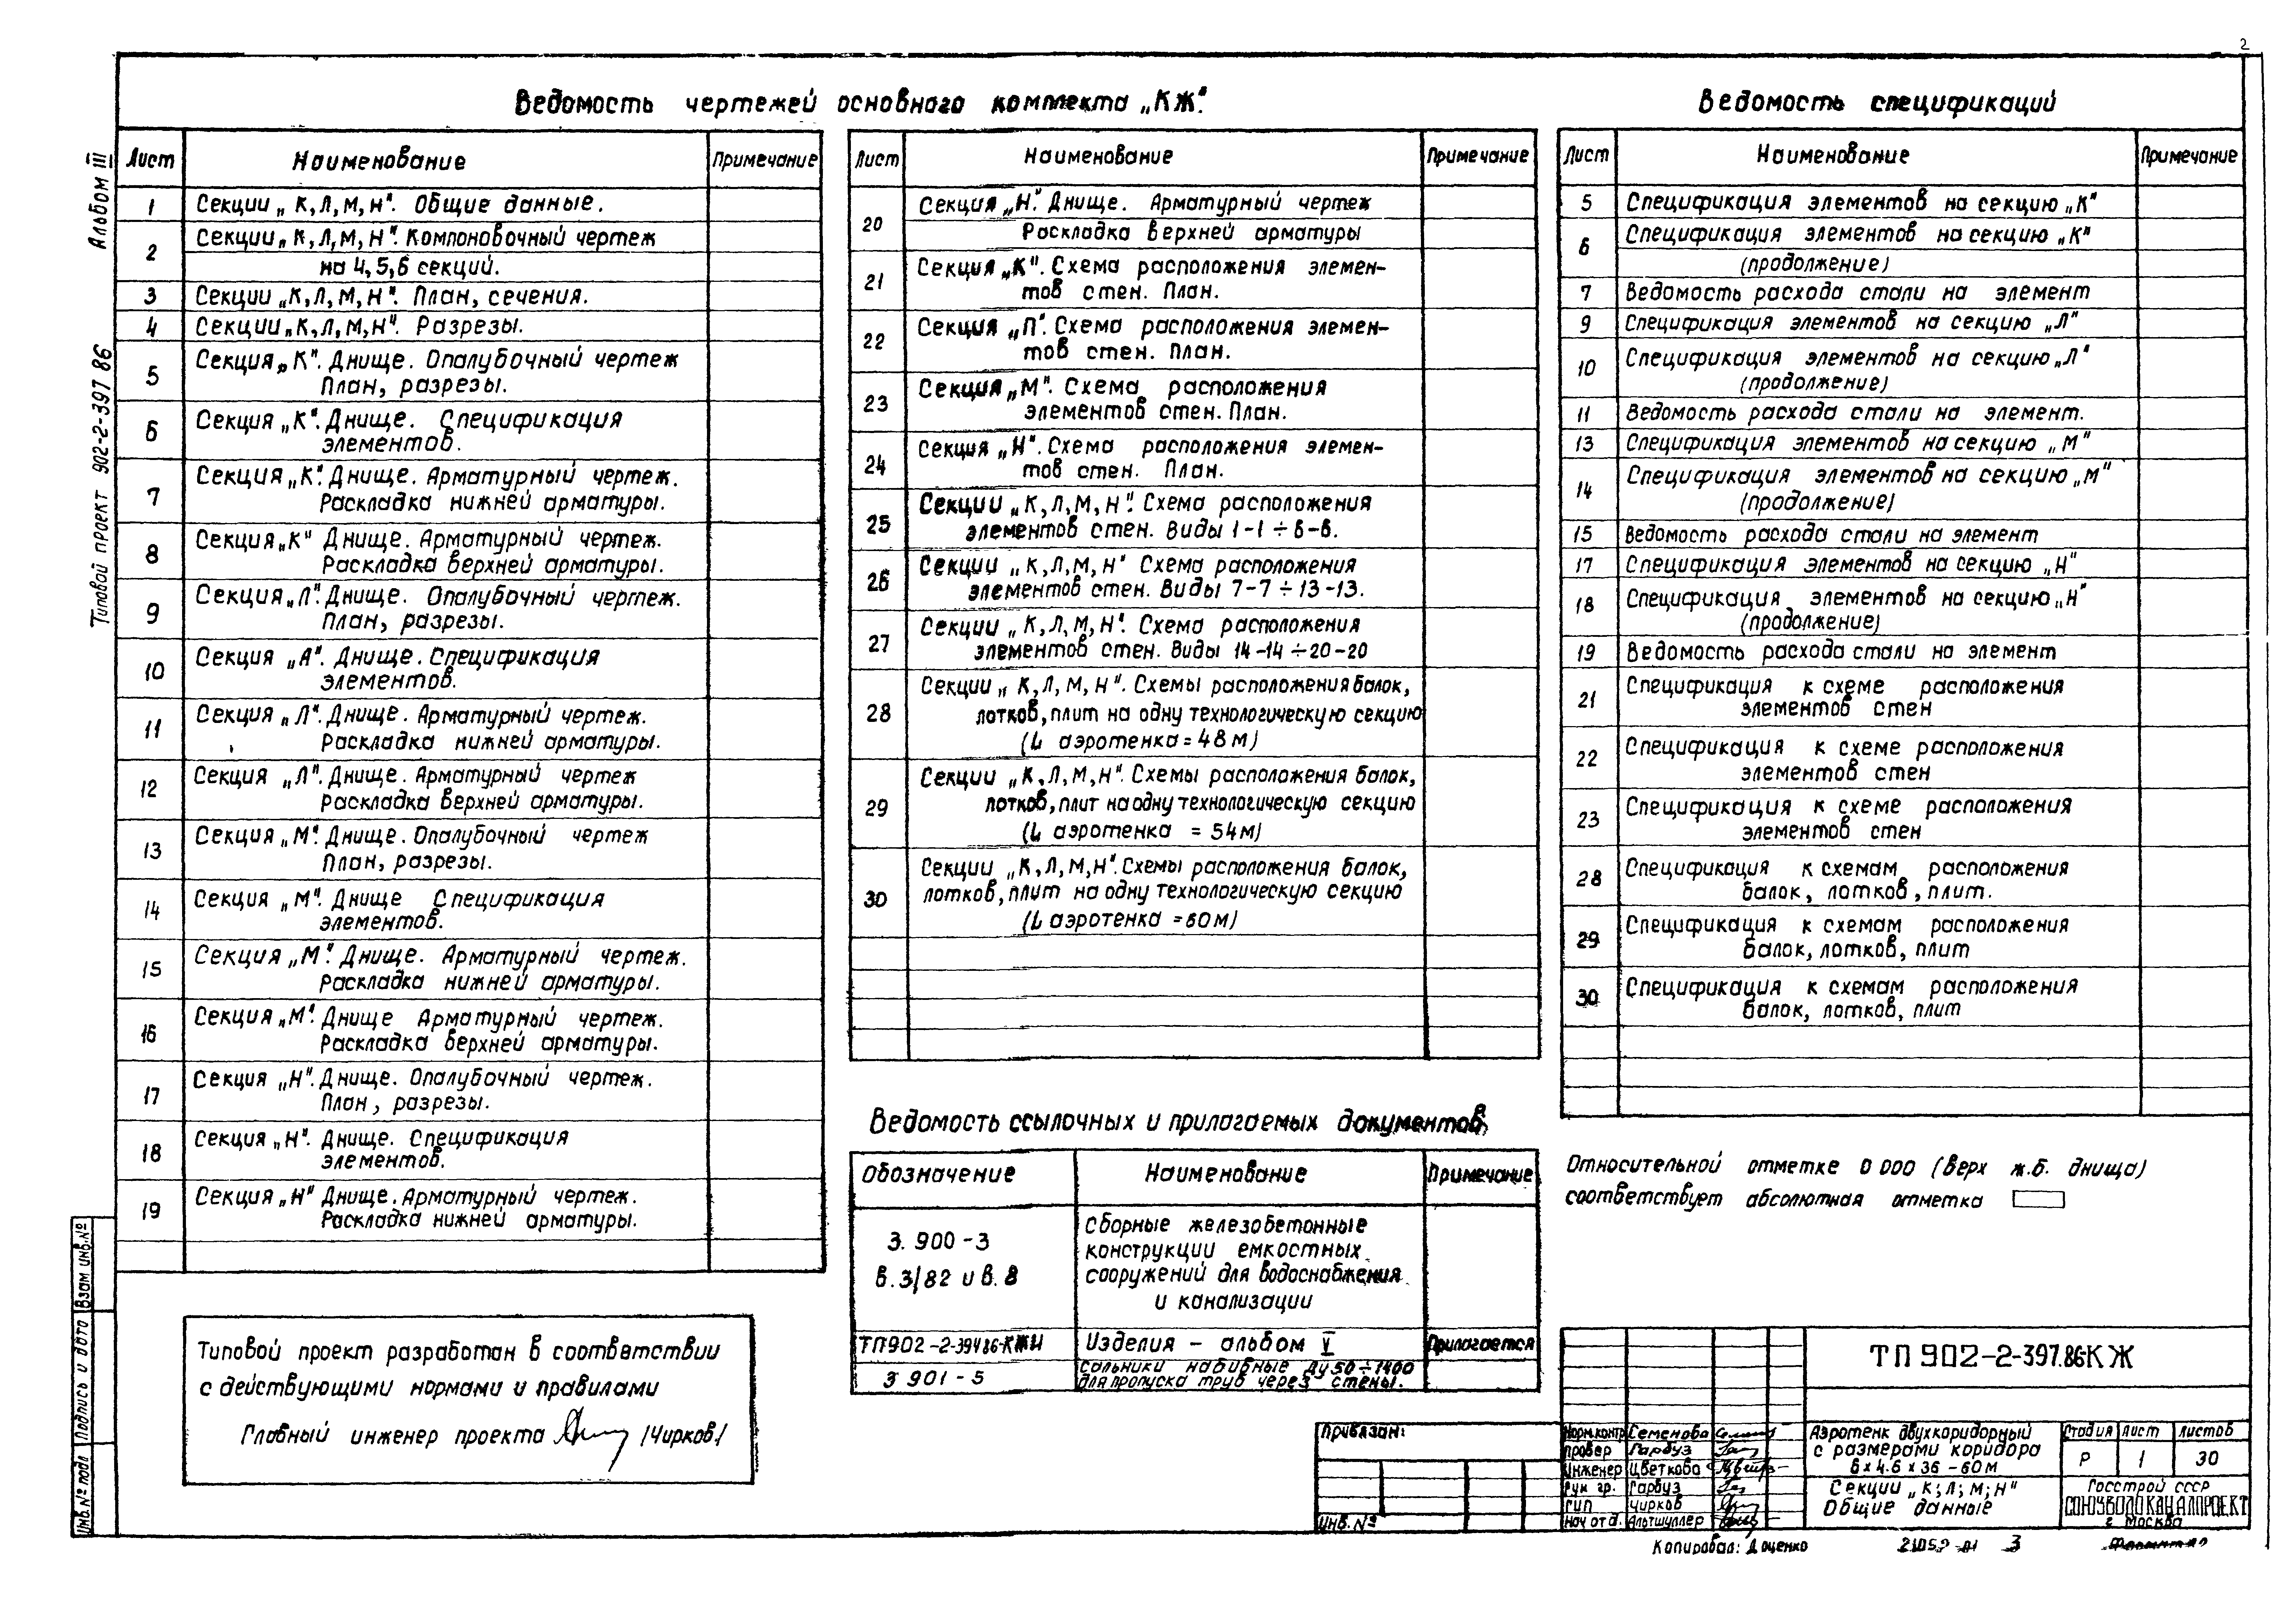 2
Альбом III
Типовой проект 902-2-397 86
Взам инв.№
Подпись и дата
Инв.№ подл
Ведомость чертежей основного комплекта „КЖ".
Лист Наименование Примечание
1 Секции „К, Л, М, Н". Общие данные.
2 Секции „К, Л, М, Н". Компоновочный чертеж
на 4, 5, 6 секций.
3 Секции „К, Л, М, Н". План, сечения.
4 Секции „К, Л, М, Н". Разрезы.
5 Секция „К". Днище. Опалубочный чертеж
План, разрезы.
6 Секция „К". Днище. Спецификация
элементов.
7 Секция „К". Днище. Арматурный чертеж.
Раскладка нижней арматуры.
8 Секция „К" Днище. Арматурный чертеж.
Раскладка верхней арматуры.
9 Секция „Л". Днище. Опалубочный чертеж.
План, разрезы.
10 Секция „Л". Днище. Спецификация
элементов.
11 Секция „Л". Днище. Арматурный чертеж.
Раскладка нижней арматуры.
12 Секция „Л". Днище. Арматурный чертеж
Раскладка верхней арматуры.
13 Секция „М". Днище. Опалубочный чертеж
План, разрезы.
14 Секция „М". Днище Спецификация
элементов.
15 Секция „М". Днище. Арматурный чертеж.
Раскладка нижней арматуры.
16 Секция „М". Днище Арматурный чертеж.
Раскладка верхней арматуры.
17 Секция „Н". Днище. Опалубочный чертеж.
План, разрезы.
18 Секция „Н". Днище. Спецификация
элементов.
19 Секция „Н" Днище. Арматурный чертеж.
Раскладка нижней арматуры.
Типовой проект разработан в соответствии
с действующими нормами и правилами
Главный инженер проекта /Чирков/
Лист Наименование Примечание
20 Секция „Н". Днище. Арматурный чертеж
Раскладка верхней арматуры
21 Секция „К". Схема расположения элемен-
тов стен. План.
22 Секция „Л". Схема расположения элемен-
тов стен. План.
23 Секция „М". Схема расположения
элементов стен. План.
24 Секция „Н". Схема расположения элемен-
тов стен. План.
25 Секции „К, Л, М, Н". Схема расположения
элементов стен. Виды 1-1 ÷ 6-6.
26 Секции „К, Л, М, Н" Схема расположения
элементов стен. Виды 7-7 ÷ 13-13.
27 Секции „К, Л, М, Н". Схема расположения
элементов стен. Виды 14-14 ÷ 20-20
28 Секции „К, Л, М, Н". Схемы расположения балок,
лотков, плит на одну технологическую секцию
(L аэротенка = 48 м)
29 Секции „К, Л, М, Н". Схемы расположения балок,
лотков, плит на одну технологическую секцию
(L аэротенка = 54 м)
30 Секции „К, Л, М, Н". Схемы расположения балок,
лотков, плит на одну технологическую секцию
(L аэротенка = 60 м)
Ведомость ссылочных и прилагаемых документов
Обозначение Наименование Примечание
3. 900 - 3
в. 3/82 и в. 8
Сборные железобетонные
конструкции емкостных
сооружений для водоснабжения
и канализации
ТП902-2-394 86-КЖИ Изделия - альбом V Прилагается
3 901 - 5 Сальники набивные Ду 50 ÷ 1400
для пропуска труб через стены.
Ведомость спецификаций
Лист Наименование Примечание
5 Спецификация элементов на секцию „К"
6 Спецификация элементов на секцию „К"
(продолжение)
7 Ведомость расхода стали на элемент
9 Спецификация элементов на секцию „Л"
10 Спецификация элементов на секцию „Л"
(продолжение)
11 Ведомость расхода стали на элемент.
13 Спецификация элементов на секцию „М"
14 Спецификация элементов на секцию „М"
(продолжение)
15 Ведомость расхода стали на элемент
17 Спецификация элементов на секцию „Н"
18 Спецификация элементов на секцию „Н"
(продолжение)
19 Ведомость расхода стали на элемент
21 Спецификация к схеме расположения
элементов стен
22 Спецификация к схеме расположения
элементов стен
23 Спецификация к схеме расположения
элементов стен
28 Спецификация к схемам расположения
балок, лотков, плит.
29 Спецификация к схемам расположения
балок, лотков, плит
30 Спецификация к схемам расположения
балок, лотков, плит
Относительной отметке 0 000 (верх ж.б. днища)
соответствует абсолютная отметка
Привязан:
Инв. №
ТП 902-2-397.86-КЖ
Норм.контр Семенова
Провер Гарбуз
Инженер Цветкова
Рук гр. Гарбуз
ГИП Чирков
Нач отд. Альтшуллер
Аэротенк двухкоридорный
с размерами коридора
6 х 4.6 х 36 - 60 м
Стадия Лист Листов
Р 1 30
Секции „К; Л; М; Н"
Общие данные
Госстрой СССР
СОЮЗВОДОКАНАЛПРОЕКТ
г Москва
Копировал: Доценко
3